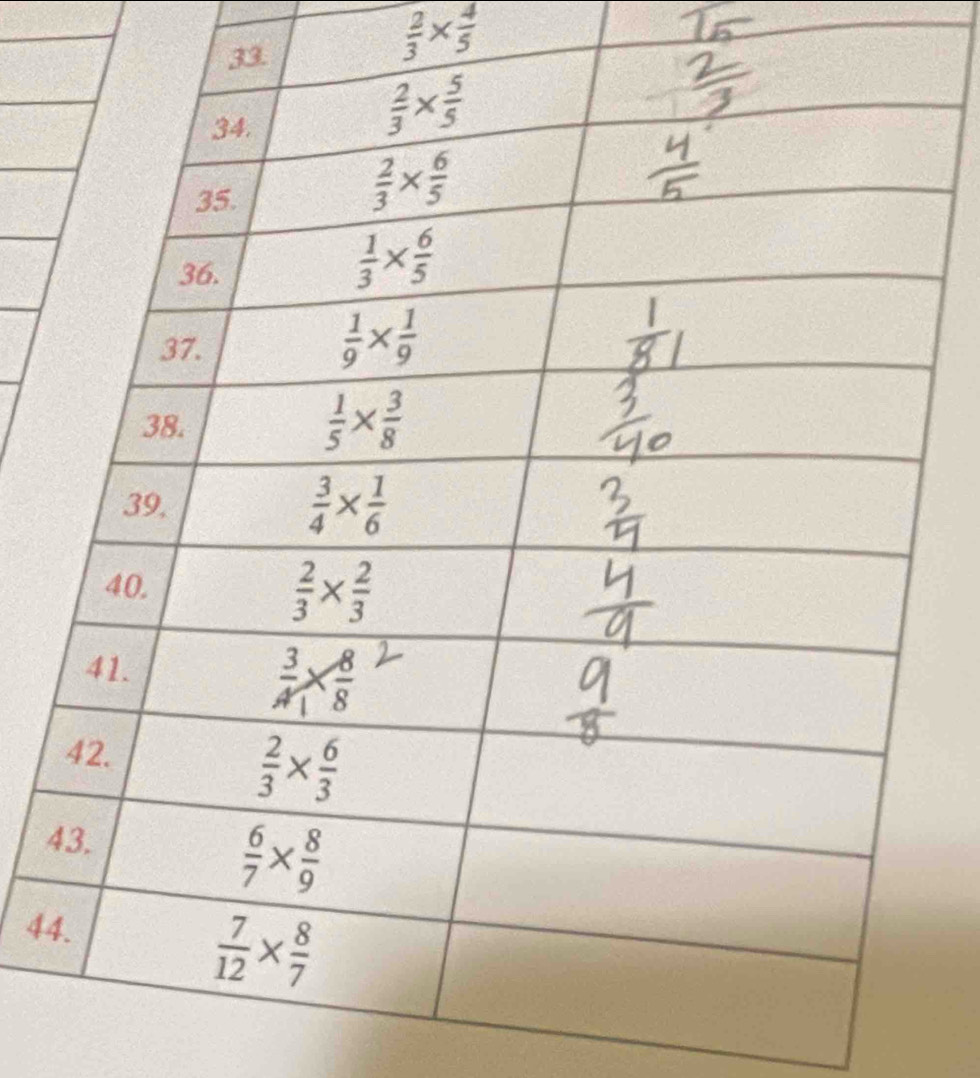 33. 2/3 × 4/5 /15
34. 2/3 × 5/5 2/3
35. 2/3 × 6/5 4/5
36. 1/3 × 6/5
37. 1/9 × 1/9 1/81
38. 1/5 × 3/8 3/40
39. 3/4 × 1/6 3/4
40. 2/3 × 2/3 4/9
41. 3/4 1 × 8/8 2 9/8
42. 2/3 × 6/3
43. 6/7 × 8/9
44. 7/12 × 8/7